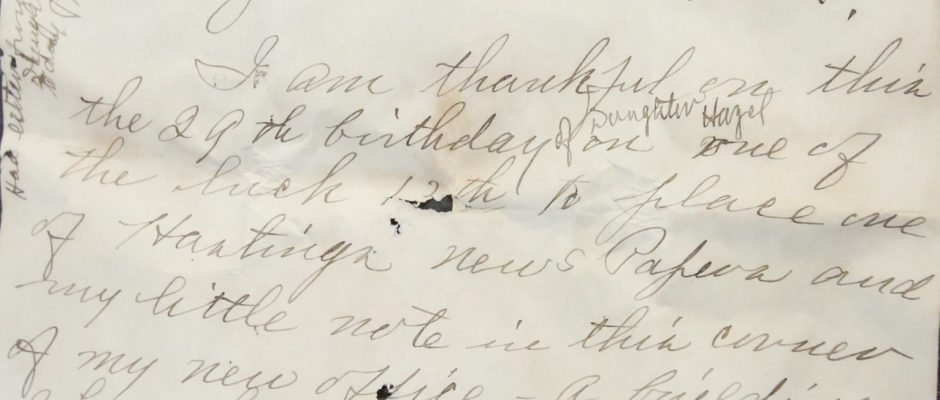 I am thankful on this
Daughter Hazel
the 29th birthday of on one of
the luck 13th to place one
of Hastings news Papers and
my little note in this corner
of my new office - a building